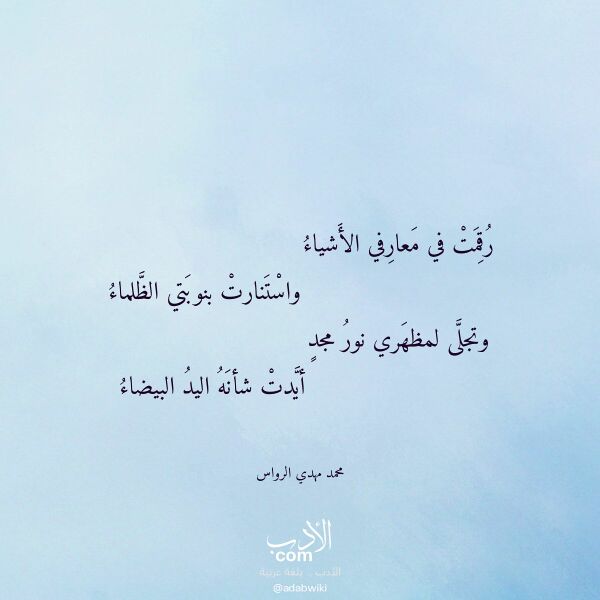 رُقِمَتْ في مَعارِفي الأَشياءُ
واسْتَنارتْ بنوبَتي الظَّلماءُ
وتجلَّى لمظهَري نورُ مجدٍ
أيَّدتْ شأنَهُ اليدُ البيضاءُ
محمد مهدي الرواس
الأدب
com
الأدب .. بلغة عربية
@adabwiki